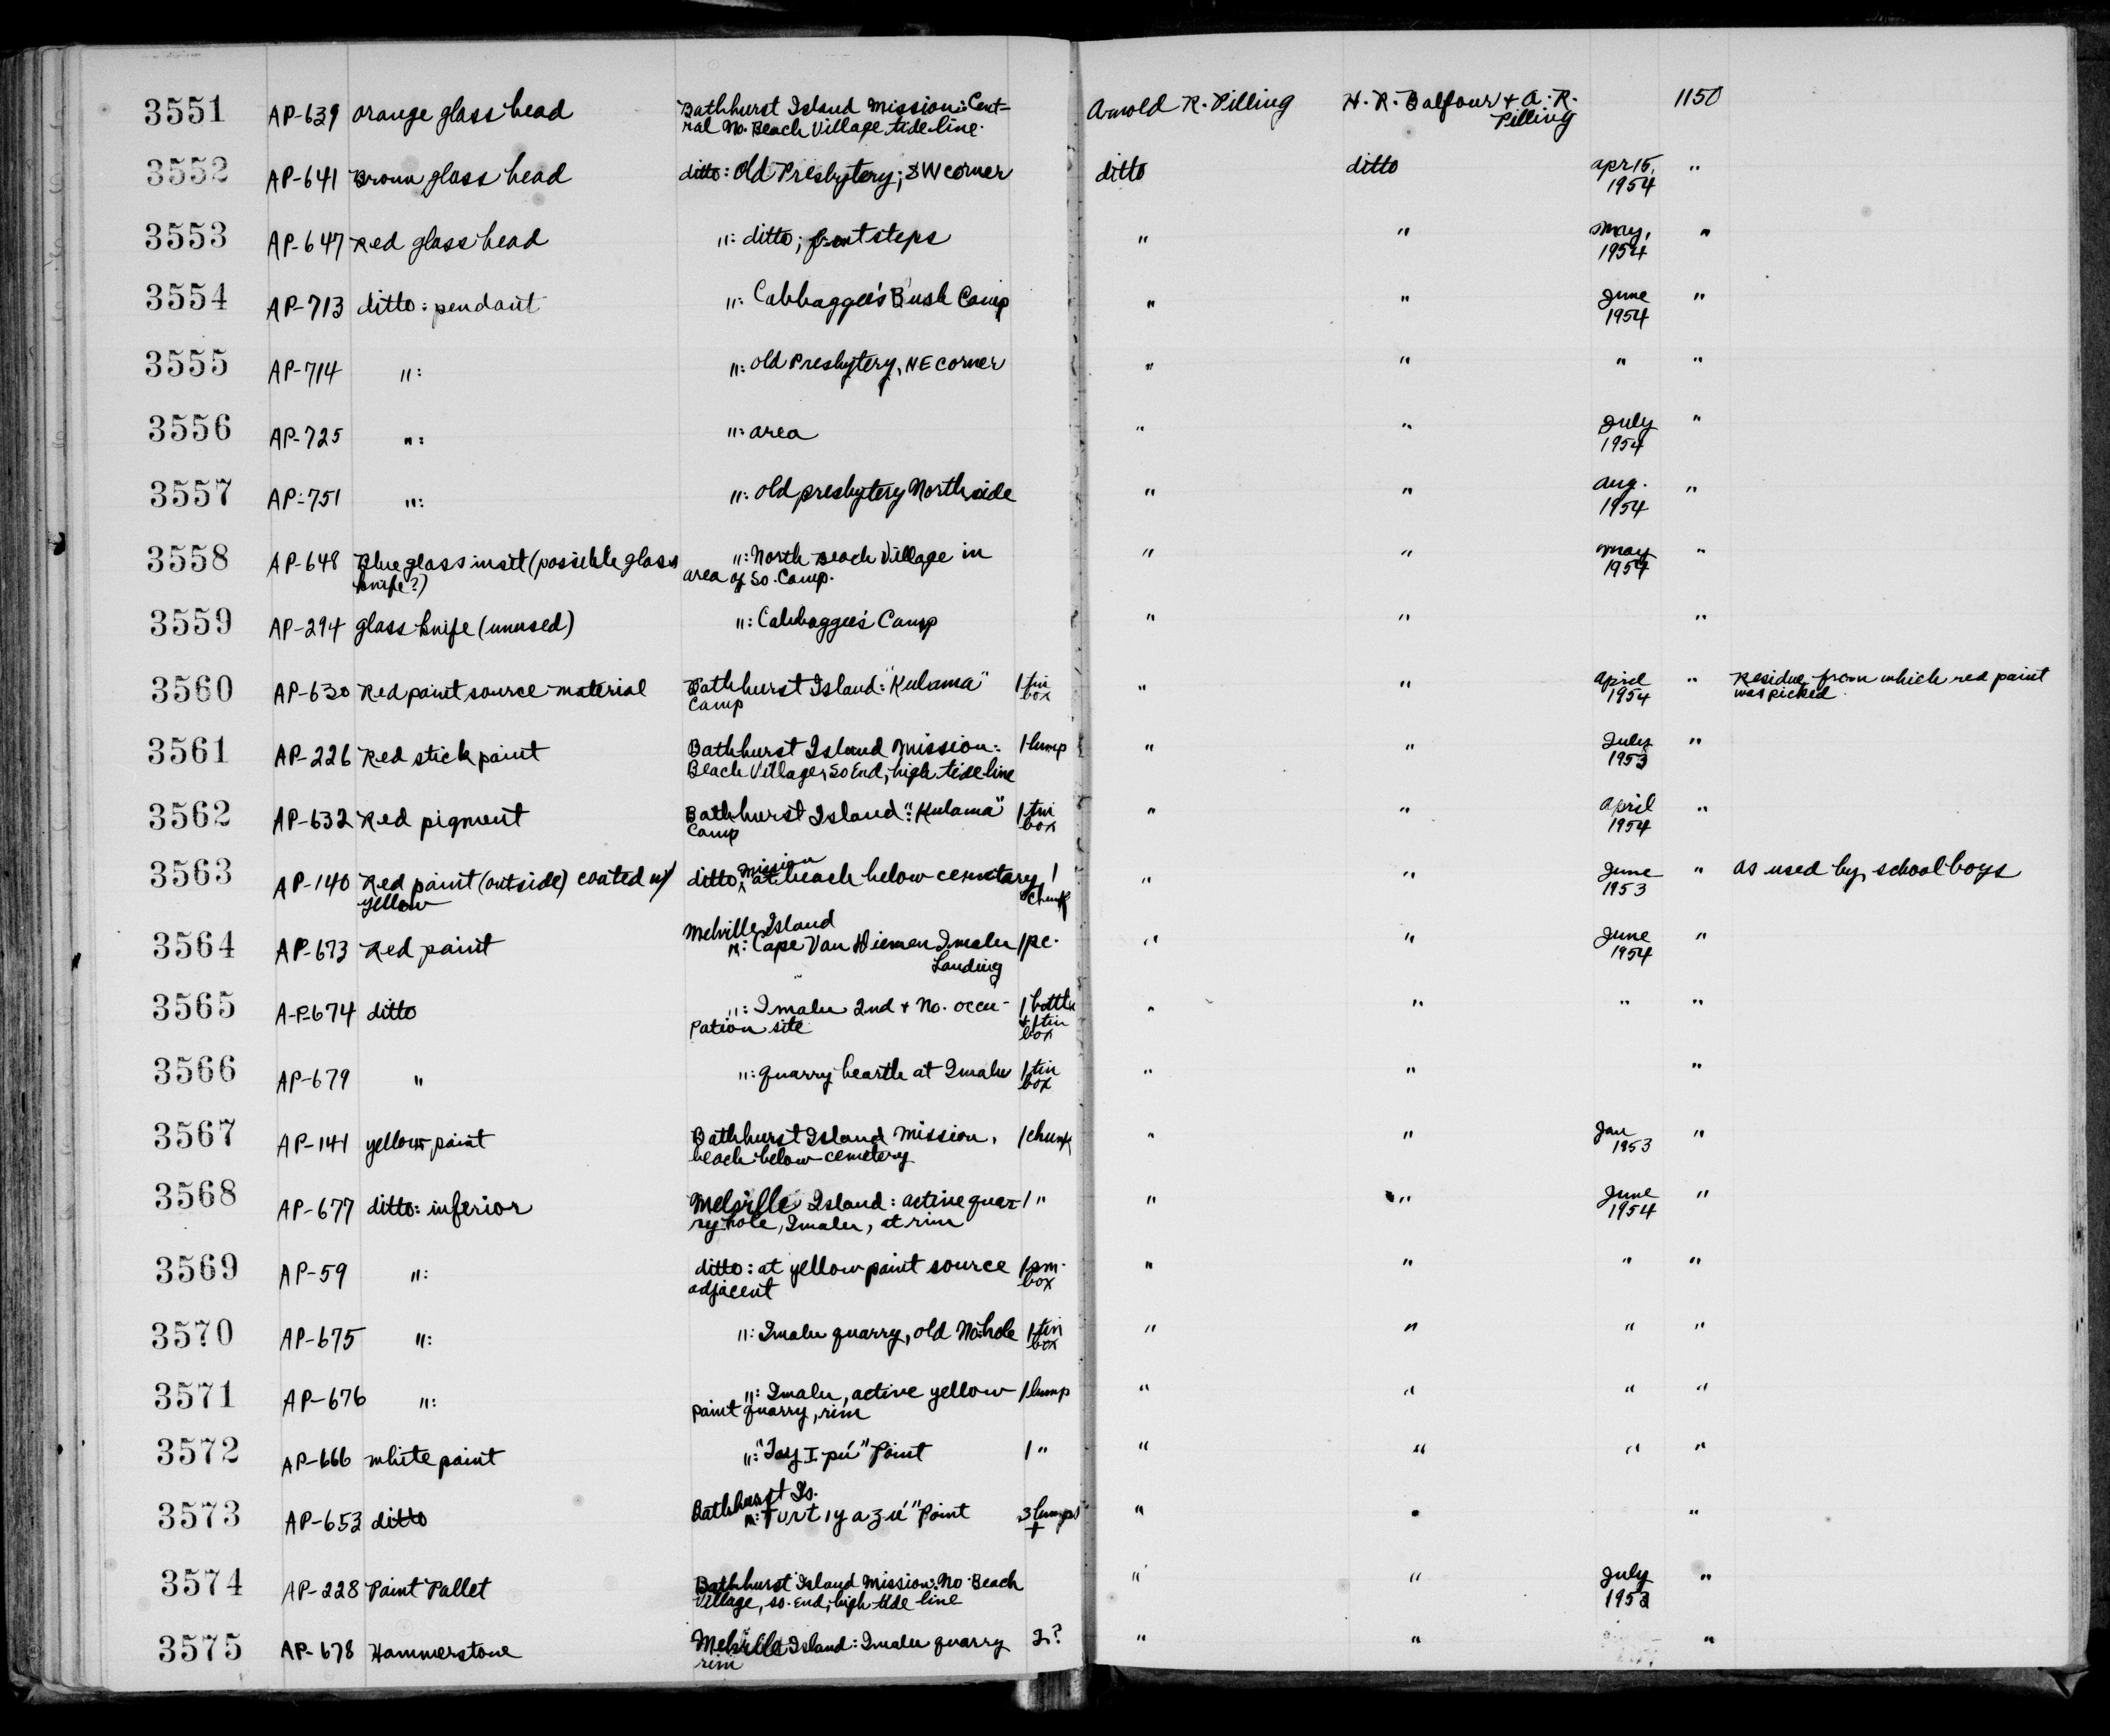 3551 AP-639 orange glass bead Bathhurst Island Mission: Cent- Arnold R. Pilling H. R. Balfour & A. R. 1150
ral No. Beach Village tide-line. Pilling
3552 AP-641 Brown glass bead ditto: Old Presbytery; SW corner ditto ditto Apr 15, "
1954
3553 AP-647 Red glass bead ": ditto; front steps " " May, "
1954
3554 AP-713 ditto: pendant ": Cabbaggee's Bush Camp " " June "
1954
3555 AP-714 ": ": old Presbytery, NE corner " " " "
3556 AP-725 ": ": area " " July "
1954
3557 AP-751 ": ": old presbytery North side " " Aug. "
1954
3558 AP-648 Blue glass inset (possible glass ": North Beach Village in " " May "
knife?) area of So. Camp. 1954
3559 AP-294 glass knife (unused) ": Cabbaggee's Camp " " "
3560 AP-630 Red paint source material Bathhurst Island: "Kulama" 1 tin " " April " Residue from which red paint
Camp box 1954 was picked
3561 AP-226 Red stick paint Bathhurst Island Mission: 1 lump " " July "
Beach Village, So End, high tide-line 1953
3562 AP-632 Red pigment Bathhurst Island: "Kulama" 1 tin " " April "
Camp box 1954
3563 AP-140 Red paint (outside) coated w/ ditto, Mission at beach below cemetary, 1 " " June " As used by school boys
yellow chunk 1953
Melville Island
3564 AP-673 Red paint ": Cape Van Diemen Imalu 1 pc. " " June "
Landing 1954
3565 A-P-674 ditto ": Imalu 2nd + No. occu- 1 bottle " " " "
pation site + 1 tin
box
3566 AP-679 " ": quarry hearth at Imalu 1 tin " " "
box
3567 AP-141 yellow paint Bathhurst Island Mission, 1 chunk " " Jan "
beach below cemetery 1953
3568 AP-677 ditto: inferior Melville Island: active quar- 1 " " " June "
ry hole, Imalu, at rim 1954
3569 AP-59 ": ditto: at yellow paint source 1 sm. " " " "
adjacent box
3570 AP-675 ": ": Imalu quarry, old No. hole 1 tin " " " "
box
3571 AP-676 ": ": Imalu, active yellow 1 lump " " " "
paint quarry, rim
3572 AP-666 white paint ": "Tay I pu" Point 1 " " " " "
Bathhurst Is.
3573 AP-653 ditto ": Turtiyazu" Point 3 lumps " " "
+
3574 AP-228 Paint Pallet Bathhurst Island Mission: No. Beach " " July "
Village, so. End; high tide line 1953
3575 AP-678 Hammerstone Melville Island: Imalu quarry 2? " " "
rim